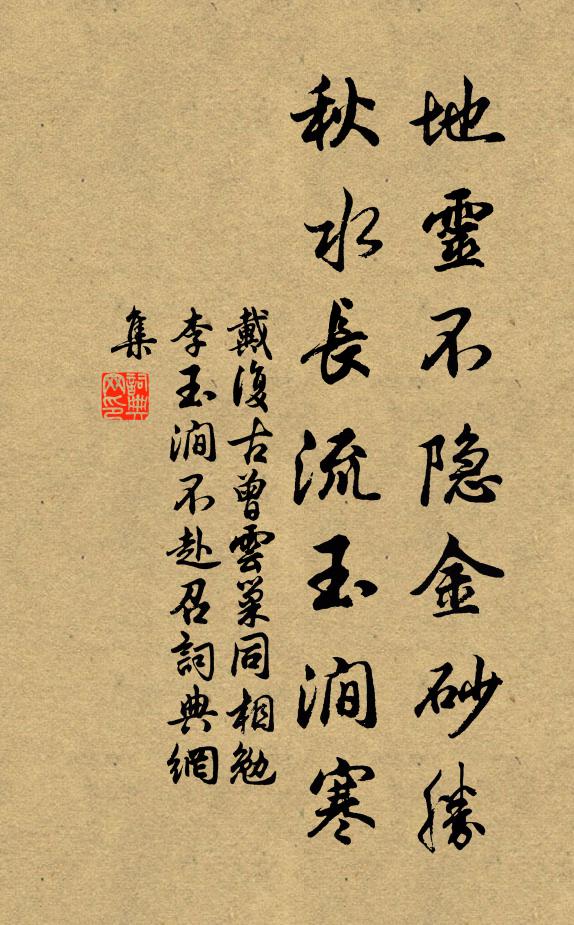 地靈不隐金砂勝
秋水長流玉澗寒
戴復古曾雲巢同相勉
李玉澗不赴召詞典網
集
詞典網印